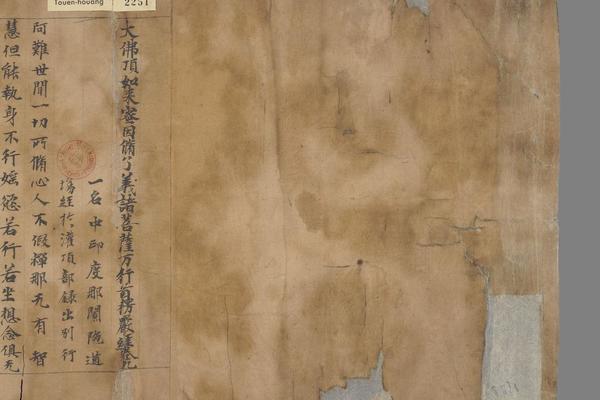 Touen-houang 2251
大佛頂如来蜜因脩了義諸菩薩万行首楞嚴經卷九
一名中印度那闌陁道
塲經於灌頂部録出別行
阿難世間一切所脩心人不假禪那无有智
慧但能執身不行婬慾若行若坐想念俱无